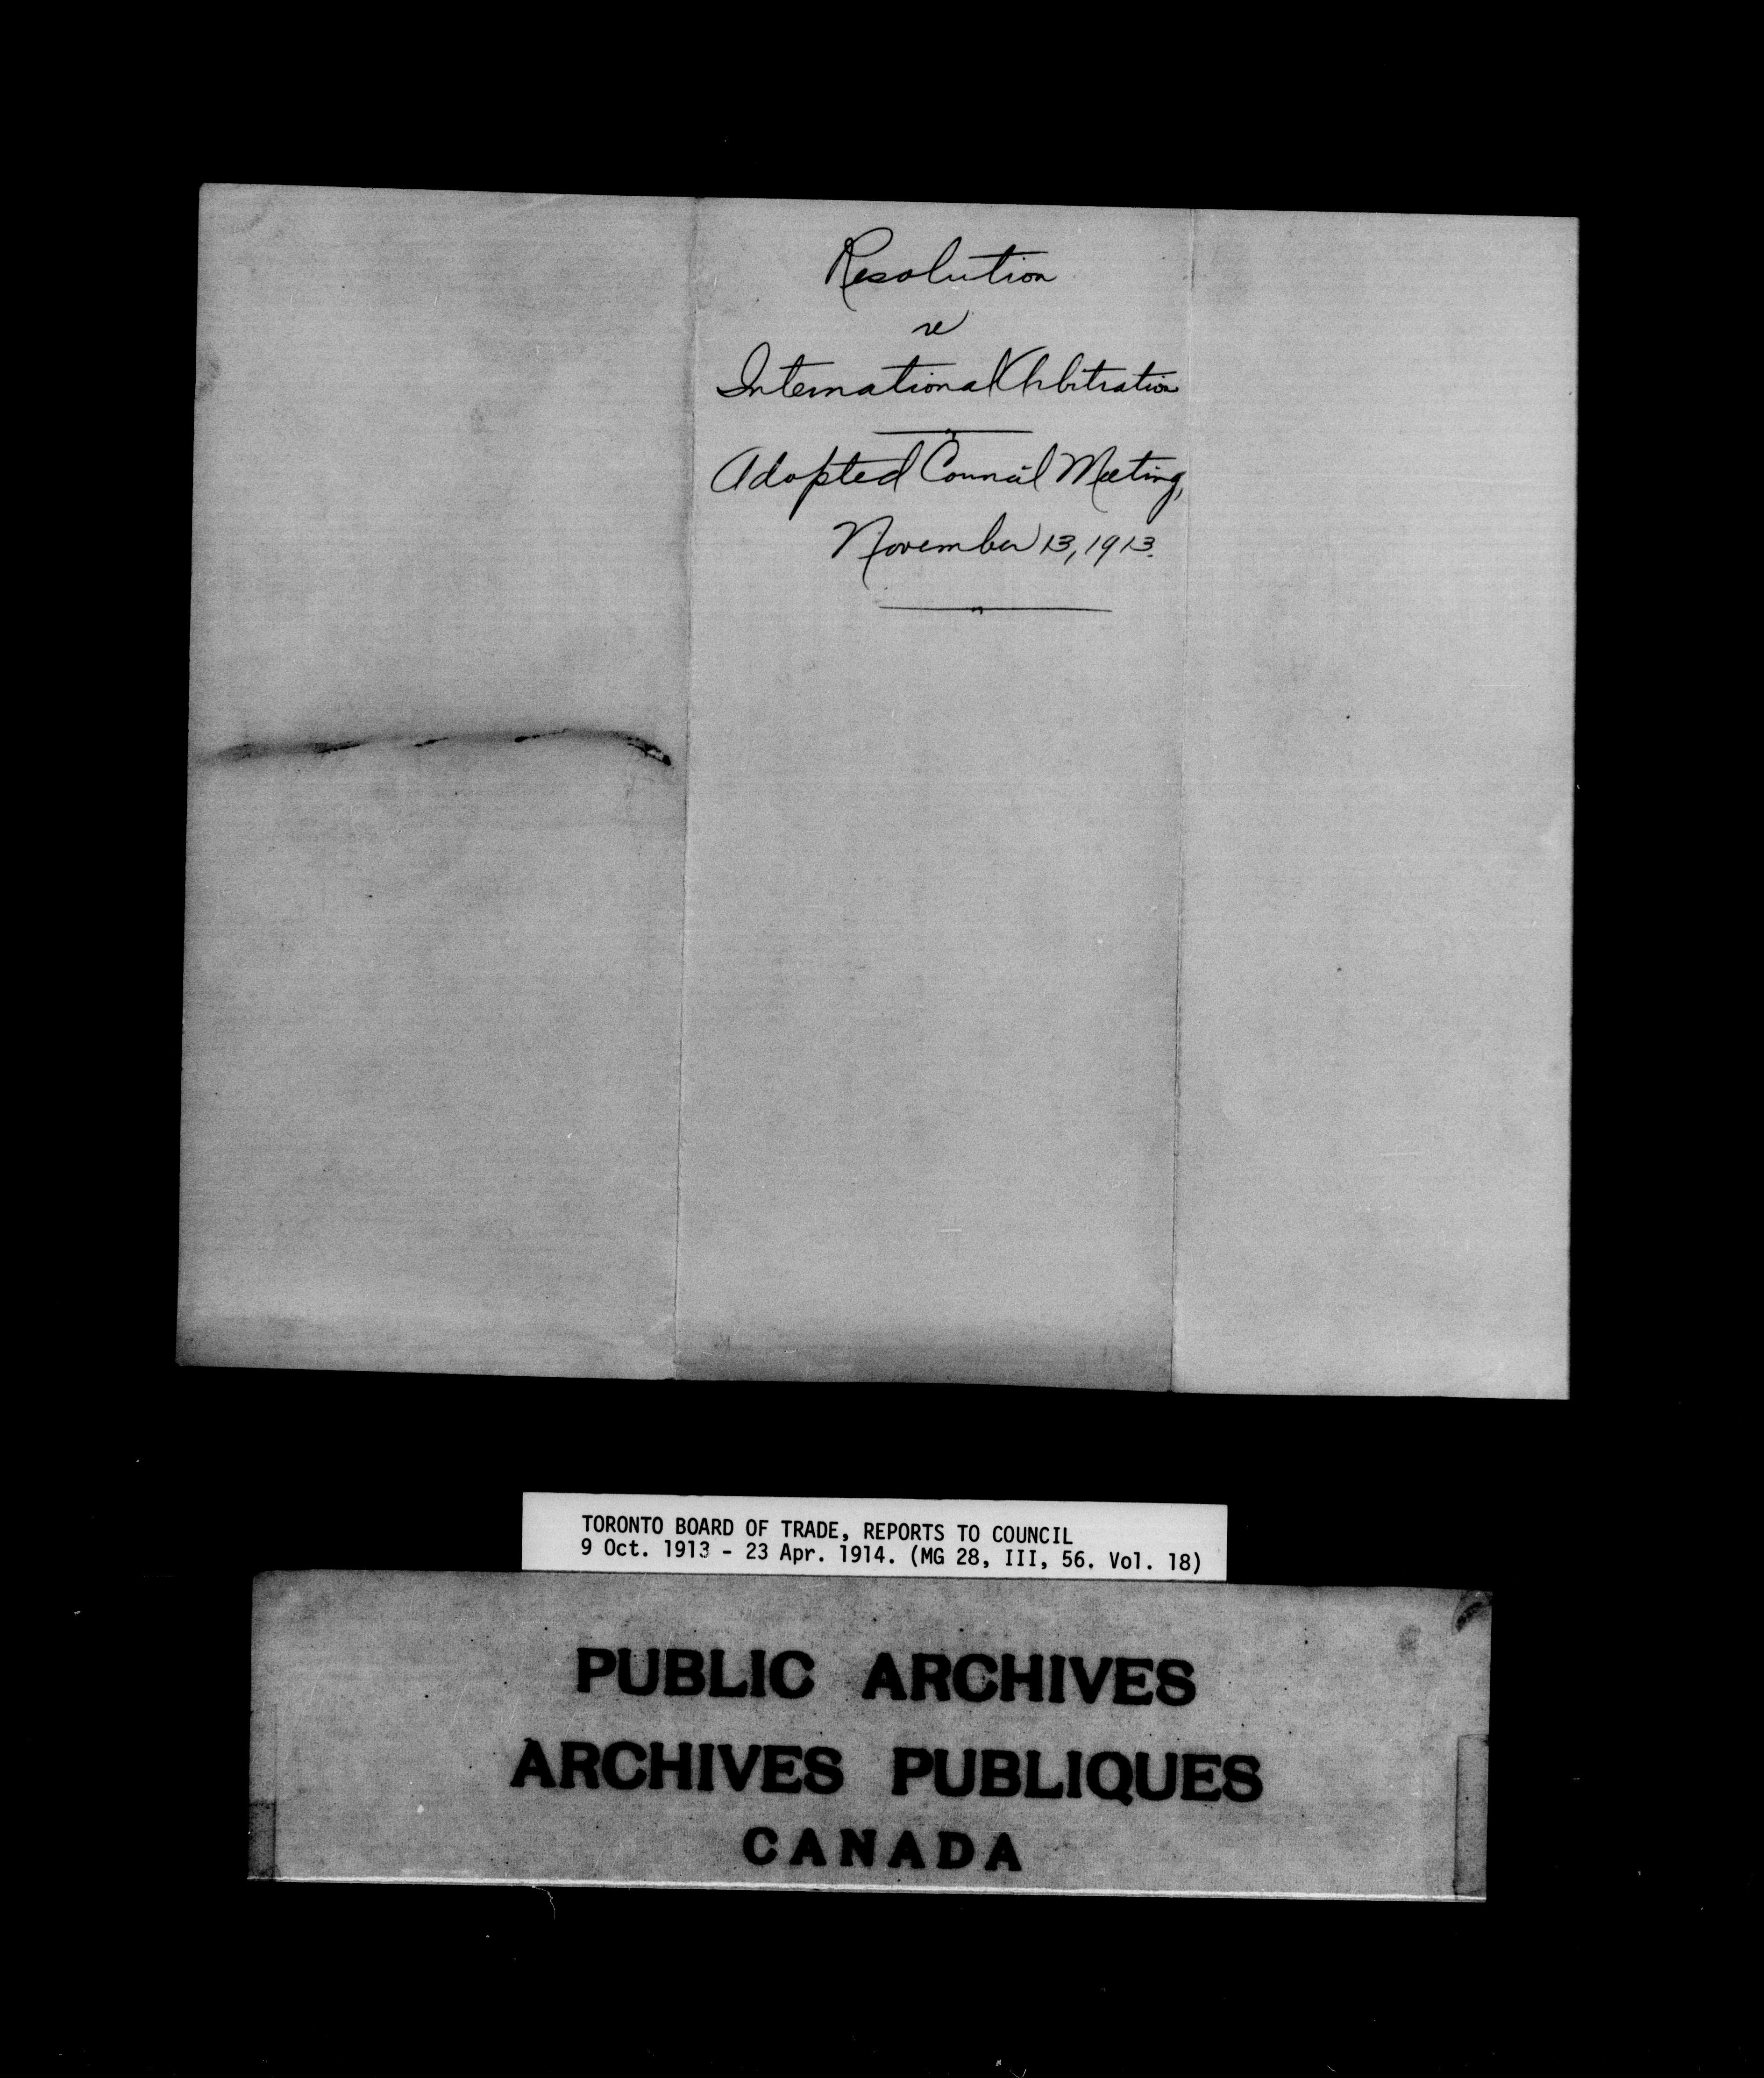 Resolution
re
International Arbitration
Adopted Council Meeting,
November 13, 1913.
TORONTO BOARD OF TRADE, REPORTS TO COUNCIL
9 Oct. 1913 - 23 Apr. 1914. (MG 28, III, 56. Vol. 18)
PUBLIC ARCHIVES
ARCHIVES PUBLIQUES
CANADA